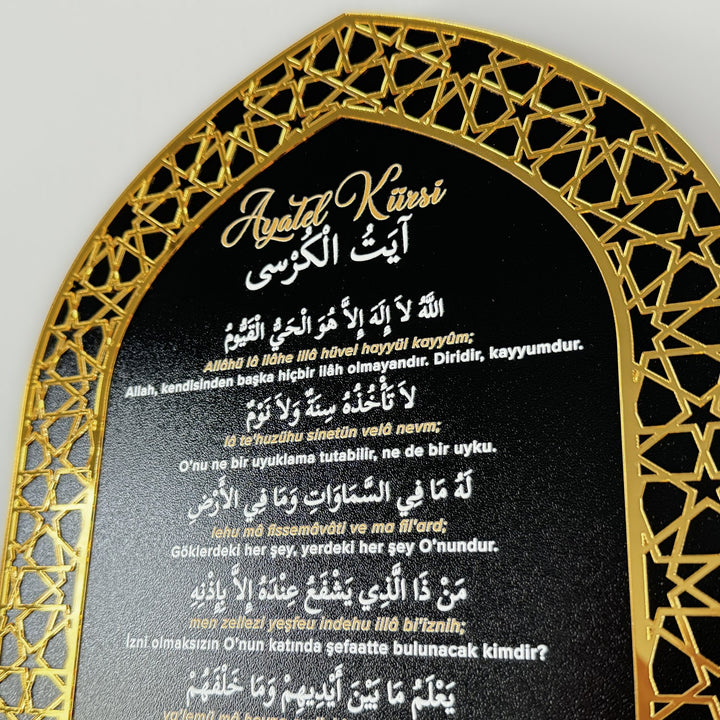 Ayatel Kürsi
آيَتُ الْكُرْسى
اللّٰهُ لاَ إِلَهَ إِلاَّ هُوَ الْحَيُّ الْقَيُّومُ
Allâhü lâ ilâhe illâ hüvel hayyül kayyûm;
Allah, kendisinden başka hiçbir ilâh olmayandır. Diridir, kayyumdur.
لاَ تَأْخُذُهُ سِنَةٌ وَلاَ نَوْمٌ
lâ te'huzühu sinetün velâ nevm;
O'nu ne bir uyuklama tutabilir, ne de bir uyku.
لَهُ مَا فِي السَّمَاوَاتِ وَمَا فِي الأَرْضِ
lehu mâ fissemâvâti ve ma fil'ard;
Göklerdeki her şey, yerdeki her şey O'nundur.
مَنْ ذَا الَّذِي يَشْفَعُ عِنْدَهُ إِلاَّ بِإِذْنِهِ
men zellezi yeşfeu indehu illâ bi'iznih;
İzni olmaksızın O'nun katında şefaatte bulunacak kimdir?
يَعْلَمُ مَا بَيْنَ أَيْدِيهِمْ وَمَا خَلْفَهُمْ